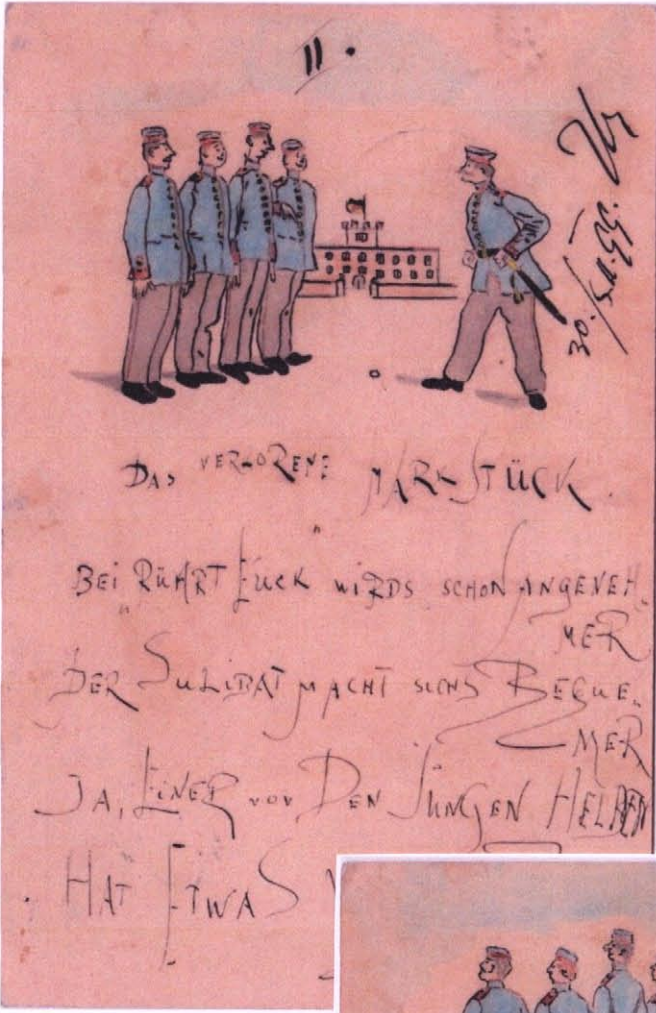 II.
DAS VERLORENE MARKSTÜCK.
BEI „RÜHRT EUCH" WIRDS SCHON ANGENEH-
MER
DER MACHT SICHS BEQUE-
MER
JA, EINER VON DEN JUNGEN HELDEN
HAT ETWAS